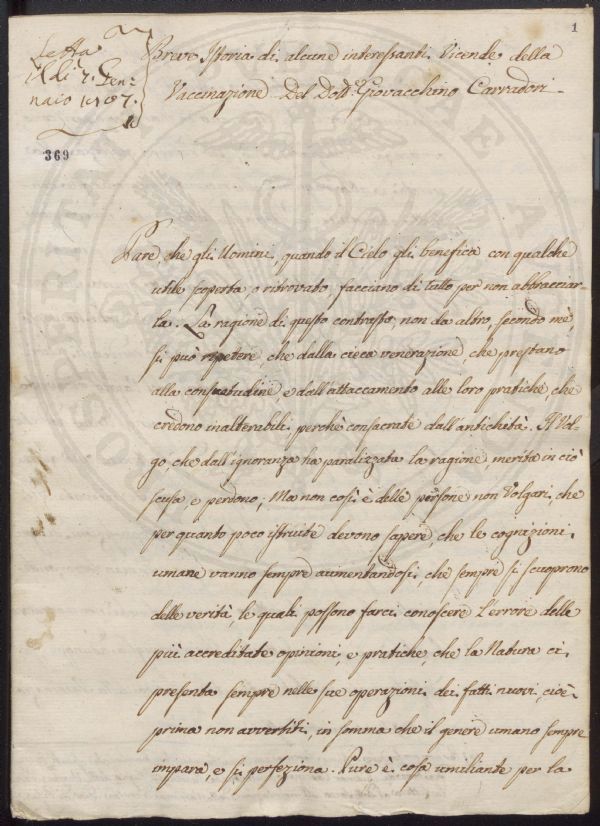 1
Letta
il dì 7. Gen=
naio 1807.
369
Breve Istoria di alcune interessanti Vicende della
Vaccinazione Del Dott. Giovacchino Carradori.
Pare, che gli Uomini, quando il Cielo gli benefica con qualche
utile scoperta, o ritrovato facciano di tutto per non abbracciar-
la. La ragione di questo contrasto, non da altro, secondo mè,
si può ripetere, che dalla cieca venerazione, che prestano
alla consuetudine, e dall'attaccamento alle loro pratiche, che
credono inalterabili perchè consacrate dall'antichità. Il Vol-
go, che dall'ignoranza ha paralizzata la ragione, merita in ciò
scusa, e perdono; Ma non così è delle persone non Volgari, che
per quanto poco istruite devono sapere, che le cognizioni
umane vanno sempre aumentandosi, che sempre si scuoprono
delle verità, le quali possono farci conoscere l'errore delle
più accreditate opinioni, e pratiche, che la Natura ci
presenta sempre nelle sue operazioni dei fatti nuovi, cioè
prima non avvertiti, in somma che il genere umano sempre
impara, e si perfeziona. Pure è cosa umiliante per la